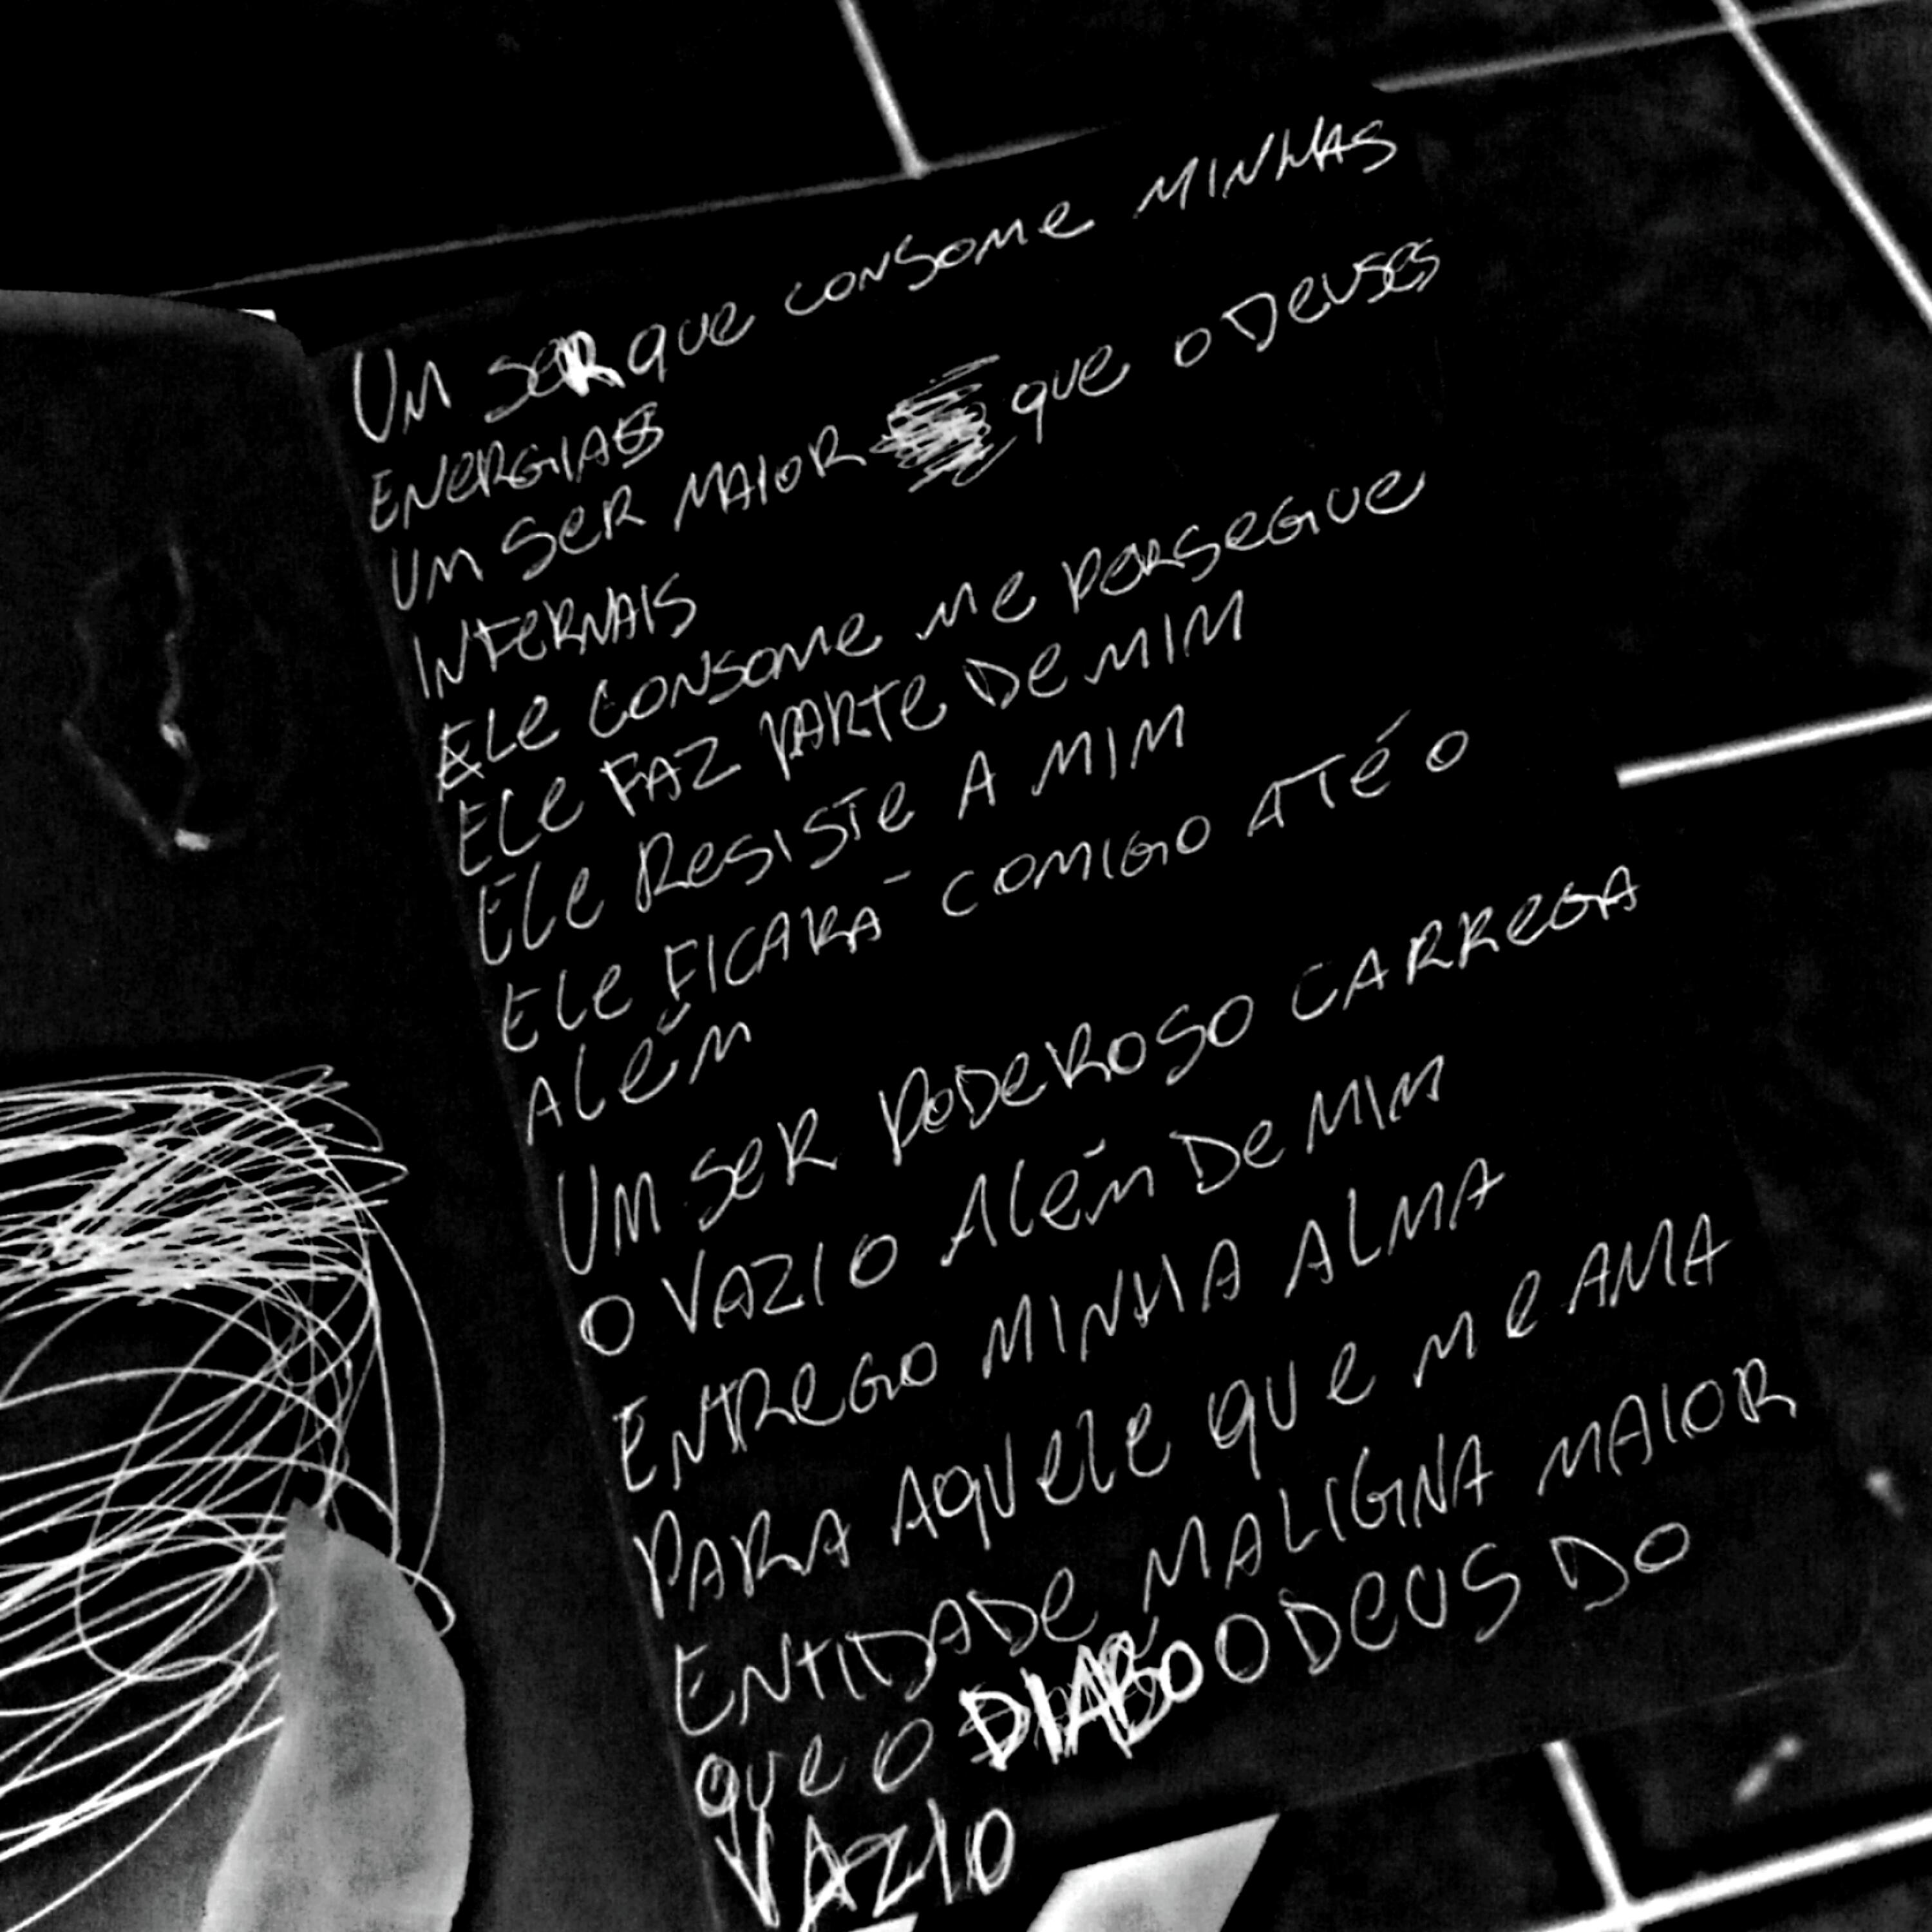 UM SER QUE CONSOME MINHAS
ENERGIAS
UM SER MAIOR QUE O DEUSES
INFERNAIS
ELE CONSOME ME PERSEGUE
ELE FAZ PARTE DE MIM
ELE RESISTE A MIM
ELE FICARÁ COMIGO ATÉ O
ALÉM
UM SER PODEROSO CARREGA
O VAZIO ALÉM DE MIM
ENTREGO MINHA ALMA
PARA AQUELE QUE ME AMA
ENTIDADE MALIGNA MAIOR
QUE O DIABO O DEUS DO
VAZIO